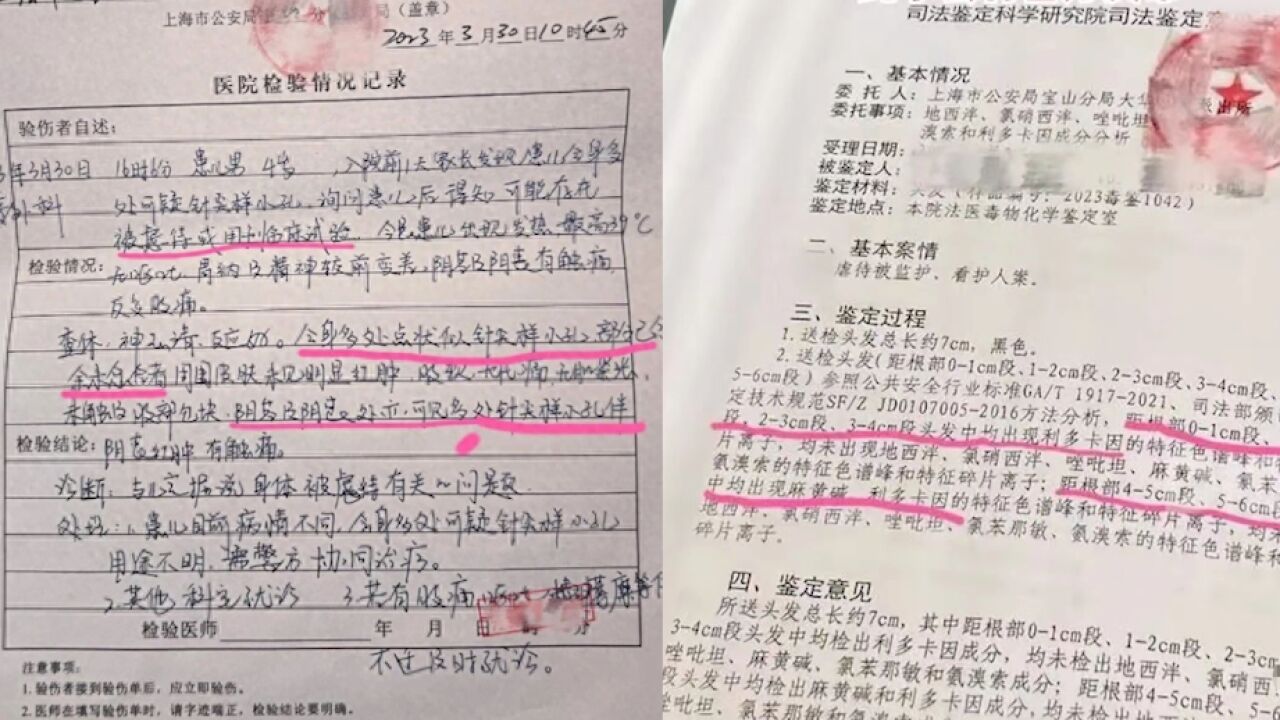 上海市公安局 分 局（盖章）
2023年3月30日10时45分
医院检验情况记录
验伤者自述：
年3月30日 16时6分 患儿男 4岁，入院前1天家长发现患儿全身多
外科 处可疑针尖样小孔，询问患儿后得知可能存在
被虐待或用于临床试验，今日患儿出现发热，最高39℃
检验情况：
无呕吐，胃纳及精神较前变差，阴茎及阴囊有触痛，
反复腹痛。
查体：神志清，反应好。全身多处点状似针尖样小孔，部分已
余未愈者周围皮肤未见明显红肿，腹软
未触及 包块，阴茎及阴囊处亦可见多处针尖样小孔伴
检验结论：
阴囊红肿有触痛。
诊断：与 据说身体被虐待有关的问题
处理：1.患儿目前病情不同，全身多处可疑针尖样小孔
用途不明，需警方协同治疗。
2.其他科室就诊 3.若有腹痛
检验医师 年 月 日 时 分
不适及时就诊。
注意事项：
1. 验伤者接到验伤单后，应立即验伤。
2. 医师在填写验伤单时，请字迹端正，检验结论要明确。
司法鉴定科学研究院司法鉴定意
一、基本情况
委 托 人：上海市公安局宝山分局大华 派出所
委托事项：地西泮、氯硝西泮、唑吡坦、
溴索和利多卡因成分分析
受理日期：
被鉴定人：
鉴定材料：头发（样品编号：2023毒鉴1042）
鉴定地点：本院法医毒物化学鉴定室
二、基本案情
虐待被监护、看护人案。
三、鉴定过程
1. 送检头发总长约7cm，黑色。
2. 送检头发（距根部0-1cm段、1-2cm段、2-3cm段、3-4cm段、
5-6cm段）参照公共安全行业标准GA/T 1917-2021、司法部颁
定技术规范SF/Z JD0107005-2016方法分析，距根部0-1cm段、
段、2-3cm段、3-4cm段头发中均出现利多卡因的特征色谱峰和特
片离子，均未出现地西泮、氯硝西泮、唑吡坦、麻黄碱、氯苯
氨溴索的特征色谱峰和特征碎片离子；距根部4-5cm段、5-6cm
中均出现麻黄碱、利多卡因的特征色谱峰和特征碎片离子，均未
地西泮、氯硝西泮、唑吡坦、氯苯那敏、氨溴索的特征色谱峰和
碎片离子。
四、鉴定意见
所送头发总长约7cm，其中距根部0-1cm段、1-2cm段、2-3cm
3-4cm段头发中均检出利多卡因成分，均未检出地西泮、氯硝西
唑吡坦、麻黄碱、氯苯那敏和氨溴索成分；距根部4-5cm段、
段头发中均检出麻黄碱和利多卡因成分，均未检出地西泮、氯硝
唑吡坦、氯苯那敏和氨溴索成分。